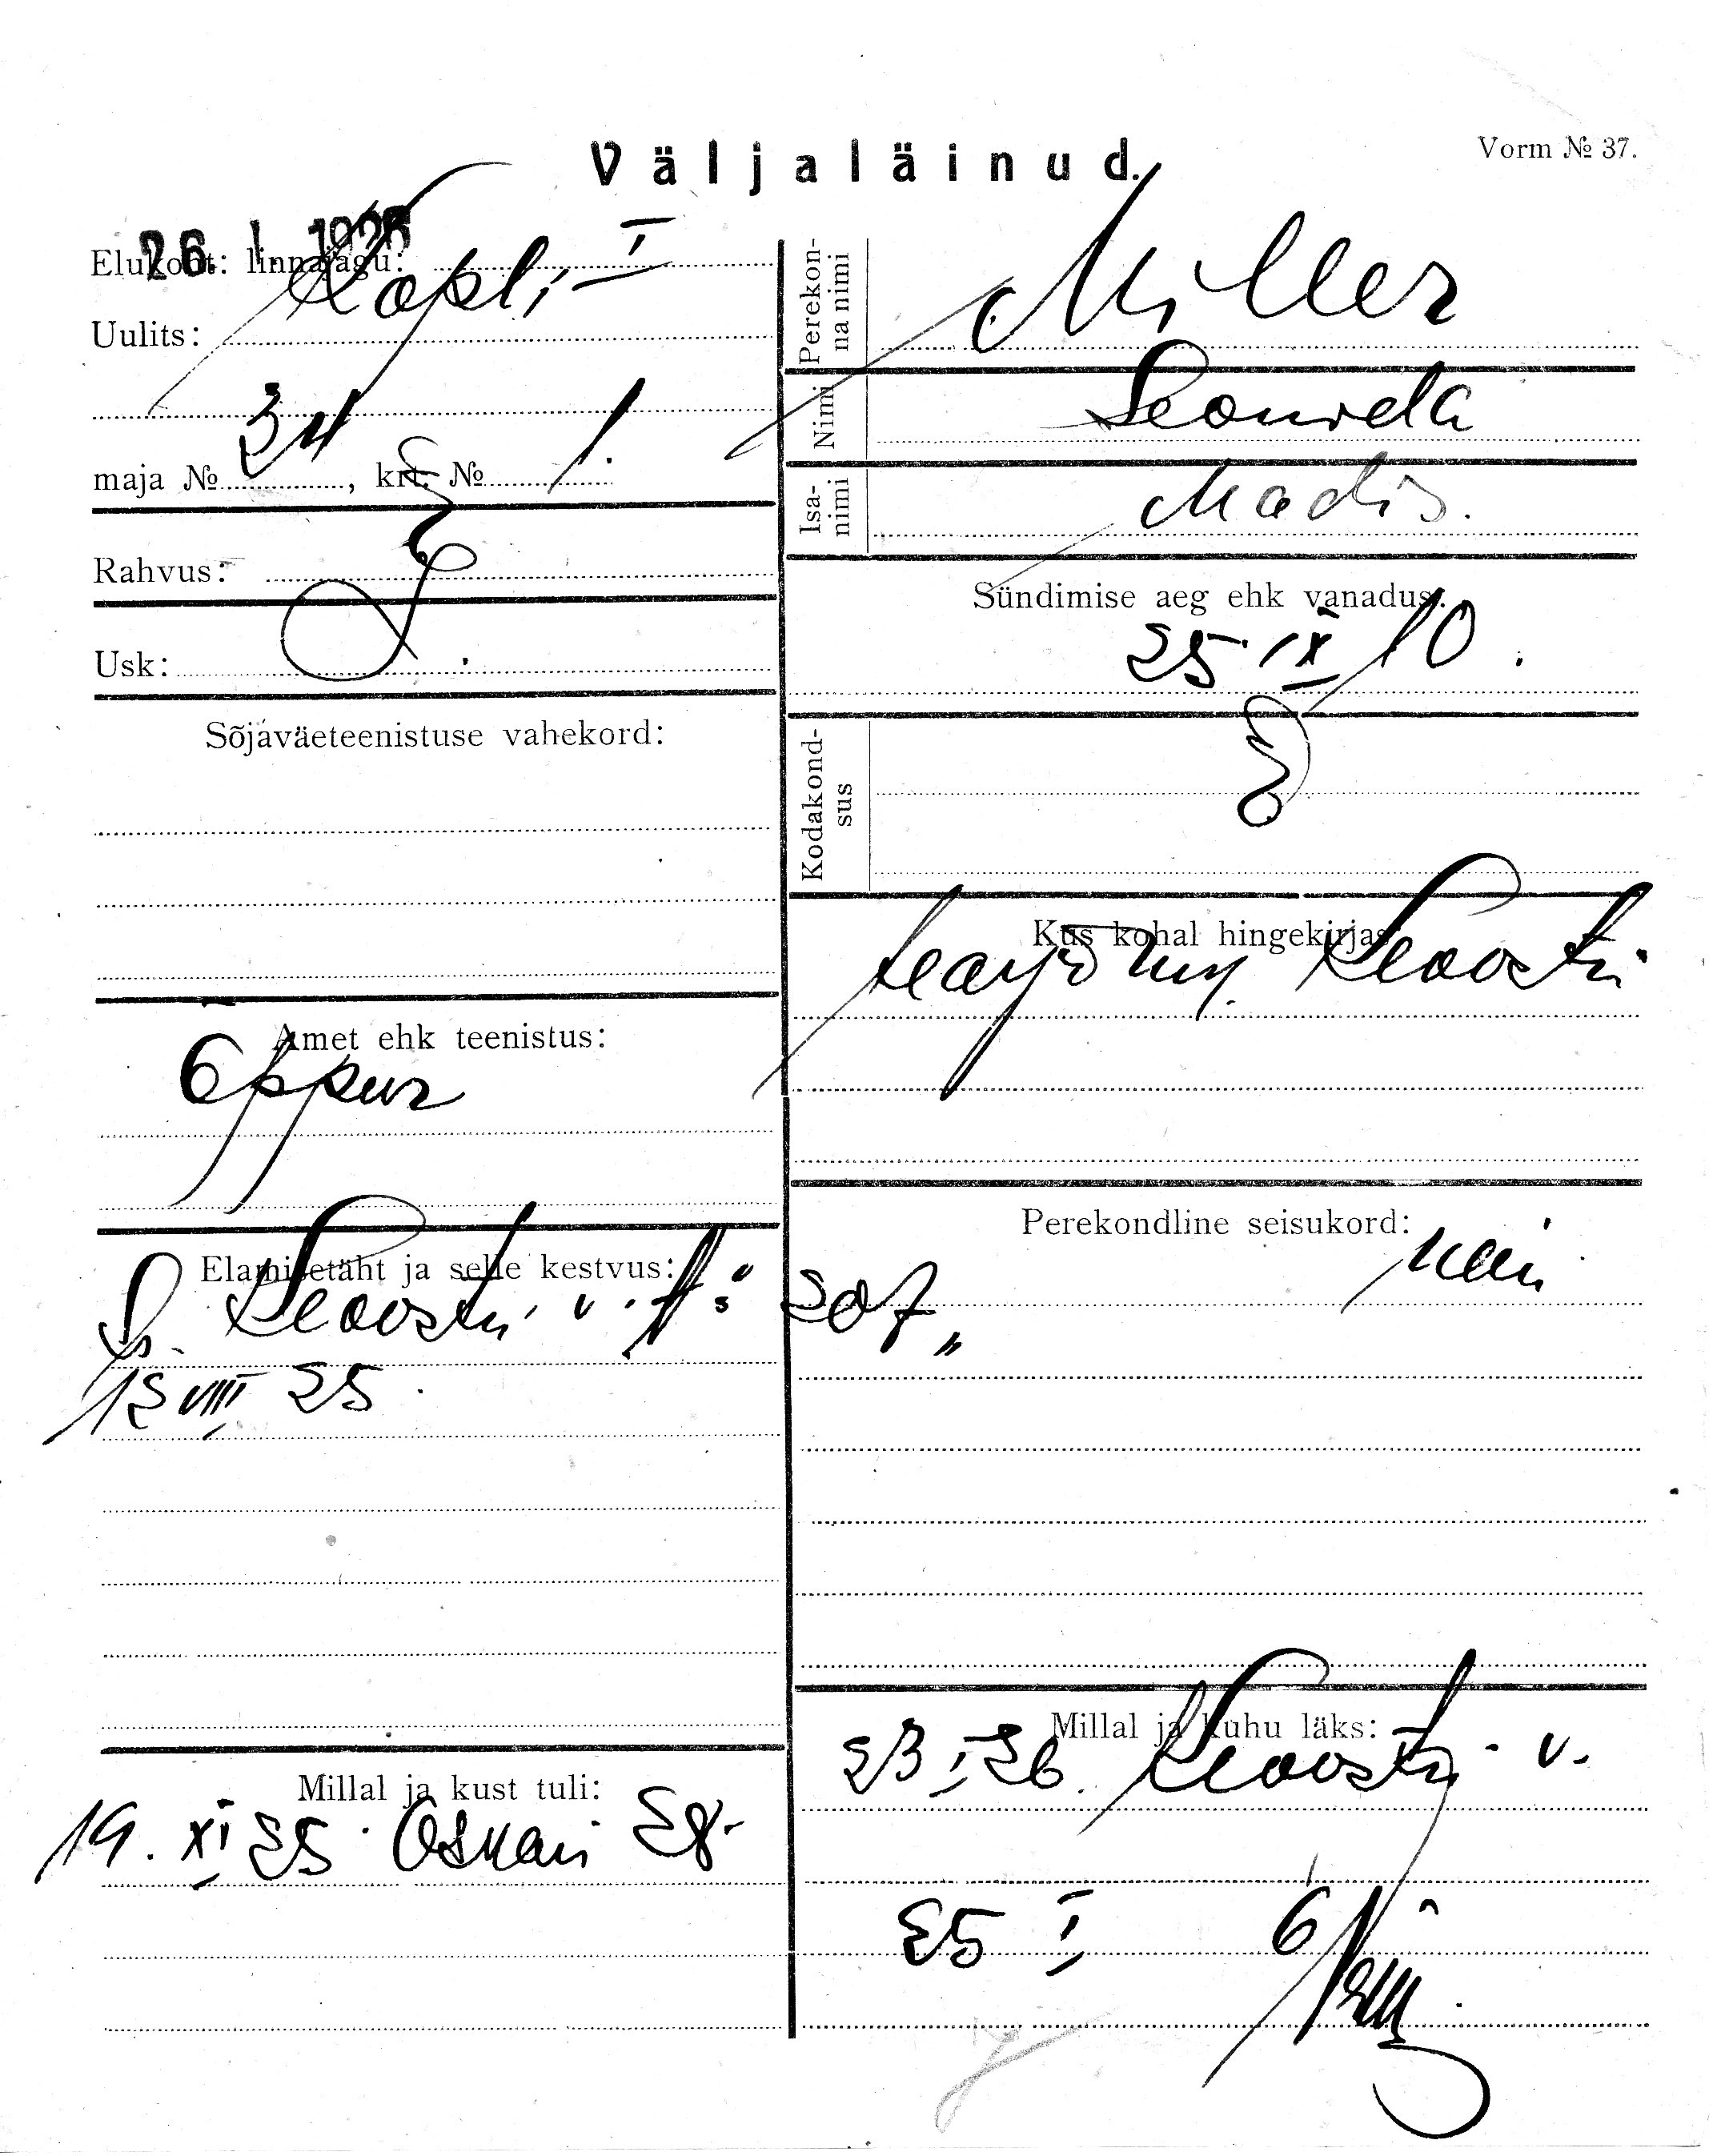 Väljaläinud.
Vorm № 37.
26. I. 1926
Elukoht: linnajagu:
Kopli I
Uulits:
maja № 34, krt. № 1.
Rahvus:
Usk:
Sõjaväeteenistuse vahekord:
Amet ehk teenistus:
Õppur
Elamisetäht ja selle kestvus:
Kloostri v. 207
12 VIII 25.
Millal ja kust tuli:
19. XI 25. Oskari 28.
Perekonna nimi
Miller
Nimi
Leonida
Isanimi
Madis.
Sündimise aeg ehk vanadus.
25 IX 10.
Kodakondsus
Kus kohal hingekirjas
Harjum. Kloostri
Perekondline seisukord:
Millal ja kuhu läks:
23 I 26. Kloostri v.
25 I 6